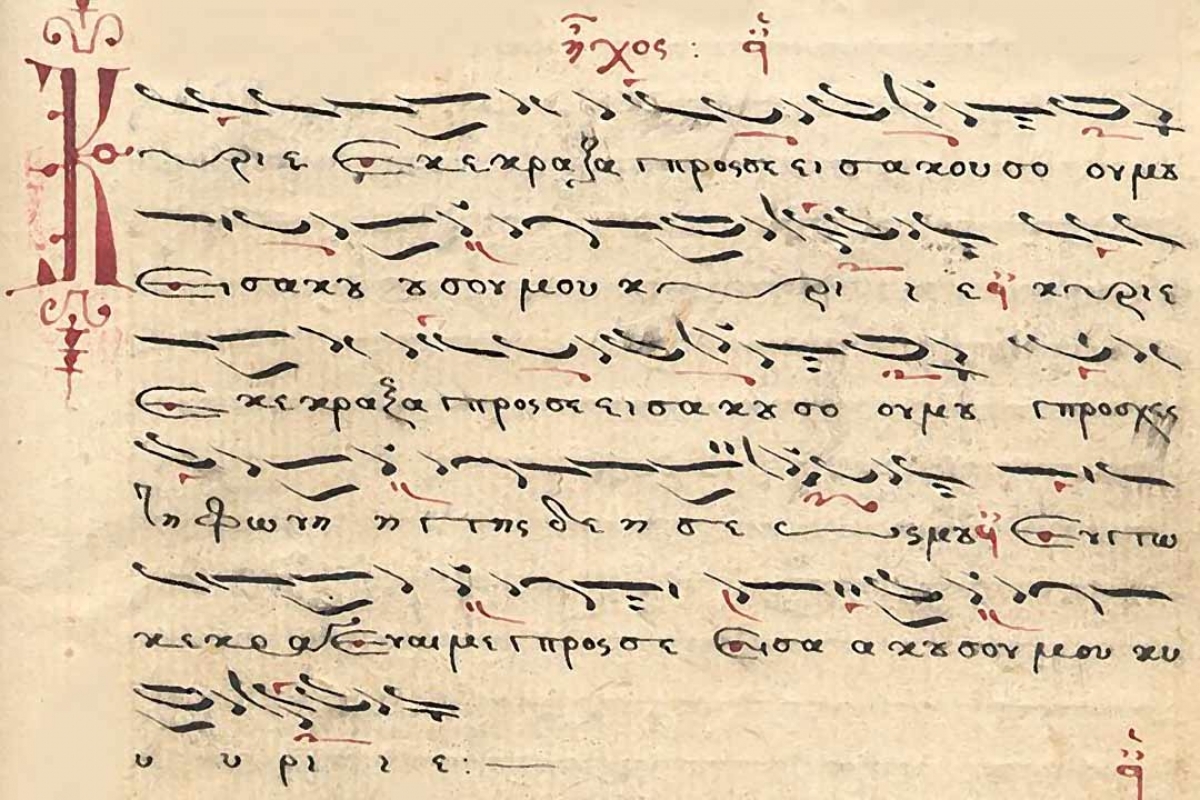 ἦχος : q̈
Κύριε Εκεκραξα προς σε εισακουσο ουμου
Εισακου ουσουμου κυρι ι ε q̈ κυριε
Εκεκραξα προς σε εισακουσο ουμου προσχες
τη φωνη η της δε η σε ως μου q̈ Εν τω
κεκραγεναι με προς σε Εισα α κουσου μου κυ
υ υ ρι ι ε : —
q̈